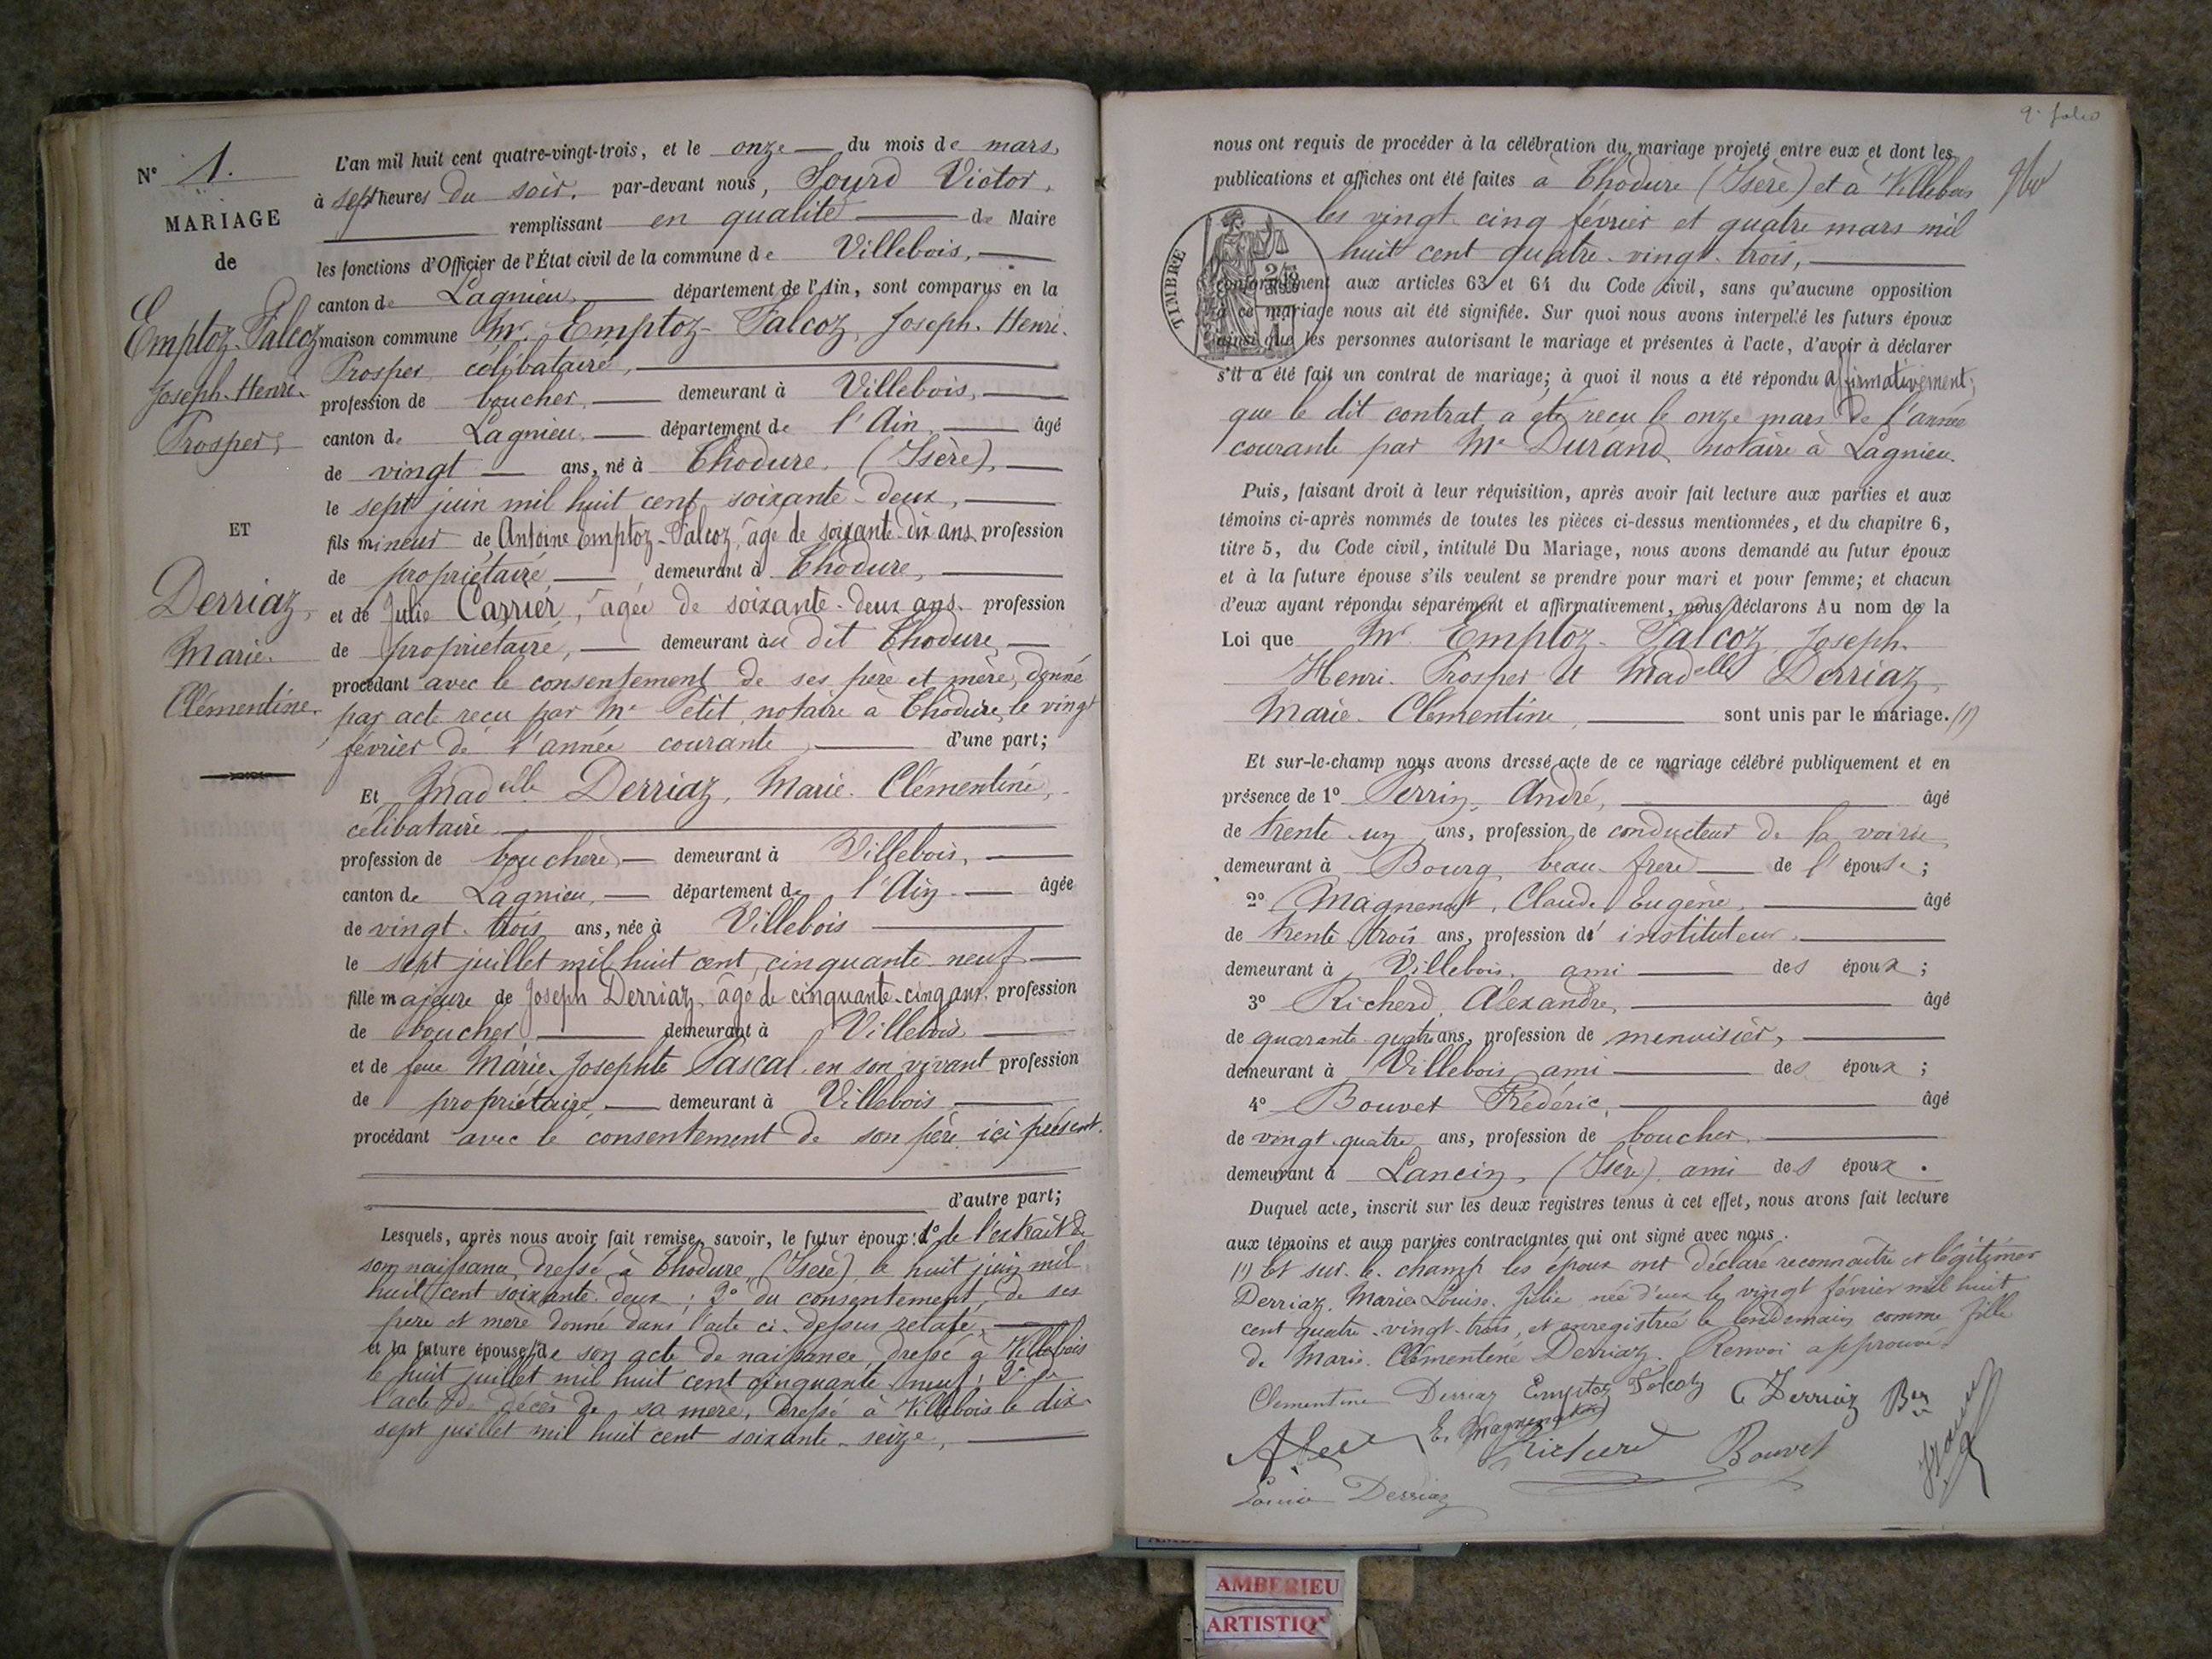 N° 1.
MARIAGE
de
Emptoz-Falcoz
Joseph-Henri-
Prosper,
ET
Derriaz,
Marie-
Clémentine.
L'an mil huit cent quatre-vingt-trois, et le onze du mois de mars,
à sept heures du soir, par-devant nous, Sourd Victor,
remplissant en qualité de Maire
les fonctions d'Officier de l'État civil de la commune de Villebois,
canton de Lagnieu, département de l'Ain, sont comparus en la
maison commune Mr. Emptoz-Falcoz, Joseph-Henri-
Prosper célibataire,
profession de boucher, demeurant à Villebois,
canton de Lagnieu, département de l'Ain, âgé
de vingt ans, né à Thodure, (Isère),
le sept juin mil huit cent soixante-deux,
fils mineur de Antoine Emptoz-Falcoz, âgé de soixante-dix ans, profession
de propriétaire, demeurant à Thodure,
et de Julie Carrier, âgée de soixante-deux ans, profession
de propriétaire, demeurant au dit Thodure,
procédant avec le consentement de ses père et mère, donné
par acte reçu par Me Petit, notaire à Thodure, le vingt
février de l'année courante, d'une part;
Et Madelle Derriaz, Marie-Clémentine,
célibataire
profession de bouchère, demeurant à Villebois,
canton de Lagnieu, département de l'Ain âgée
de vingt-trois ans, née à Villebois
le sept juillet mil huit cent cinquante-neuf
fille majeure de Joseph Derriaz, âgé de cinquante-cinq ans, profession
de boucher demeurant à Villebois
et de feue Marie-Josephte Pascal en son vivant profession
de propriétaire, demeurant à Villebois
procédant avec le consentement de son père ici présent.
d'autre part;
Lesquels, après nous avoir fait remise, savoir, le futur époux: 1° de l'extrait de
son naissance, dressé à Thodure, (Isère) le huit juin mil
huit cent soixante-deux; 2° du consentement de ses
père et mère donné dans l'acte ci-dessus relaté,
et la future épouse, de son acte de naissance, dressé à Villebois
le huit juillet mil huit cent cinquante-neuf; 2° de
l'acte de décès de sa mère, dressé à Villebois le dix-
sept juillet mil huit cent soixante-seize,
9e folio
nous ont requis de procéder à la célébration du mariage projeté entre eux et dont les
publications et affiches ont été faites à Thodure (Isère) et à Villebois
les vingt-cinq février et quatre mars mil
huit cent quatre-vingt-trois,
TIMBRE
conformément aux articles 63 et 64 du Code civil, sans qu'aucune opposition
à ce mariage nous ait été signifiée. Sur quoi nous avons interpellé les futurs époux
ainsi que les personnes autorisant le mariage et présentes à l'acte, d'avoir à déclarer
s'il a été fait un contrat de mariage; à quoi il nous a été répondu affirmativement,
que le dit contrat a été reçu le onze mars de l'année
courante par Me Durand, notaire à Lagnieu.
Puis, faisant droit à leur réquisition, après avoir fait lecture aux parties et aux
témoins ci-après nommés de toutes les pièces ci-dessus mentionnées, et du chapitre 6,
titre 5, du Code civil, intitulé Du Mariage, nous avons demandé au futur époux
et à la future épouse s'ils veulent se prendre pour mari et pour femme; et chacun
d'eux ayant répondu séparément et affirmativement, nous déclarons Au nom de la
Loi que Mr. Emptoz-Falcoz, Joseph-
Henri-Prosper et Madelle Derriaz,
Marie-Clémentine, sont unis par le mariage. (1)
Et sur-le-champ nous avons dressé acte de ce mariage célébré publiquement et en
présence de 1° Perrin, André, âgé
de trente-un ans, profession de conducteur de la voirie
demeurant à Bourg, beau-frère de l'épouse;
2° Magnenat, Claude Eugène, âgé
de trente-trois ans, profession de instituteur,
demeurant à Villebois, ami des époux;
3° Richerd, Alexandre, âgé
de quarante-quatre ans, profession de menuisier,
demeurant à Villebois ami des époux;
4° Bouvet Frédéric, âgé
de vingt-quatre ans, profession de boucher
demeurant à Lancin, (Isère), ami des époux.
Duquel acte, inscrit sur les deux registres tenus à cet effet, nous avons fait lecture
aux témoins et aux parties contractantes qui ont signé avec nous.
(1) Et sur-le-champ les époux ont déclaré reconnaître et légitimer
Derriaz, Marie Louise Julie née d'eux le vingt février mil huit
cent quatre-vingt-trois, et enregistrée le lendemain comme fille
de Marie-Clémentine Derriaz. Renvoi approuvé.
Clementine Derriaz Emptoz Falcoz Derriaz
E. Magnenat Richerd Bouvet
Derriaz
AMBERIEU
ARTISTIQ